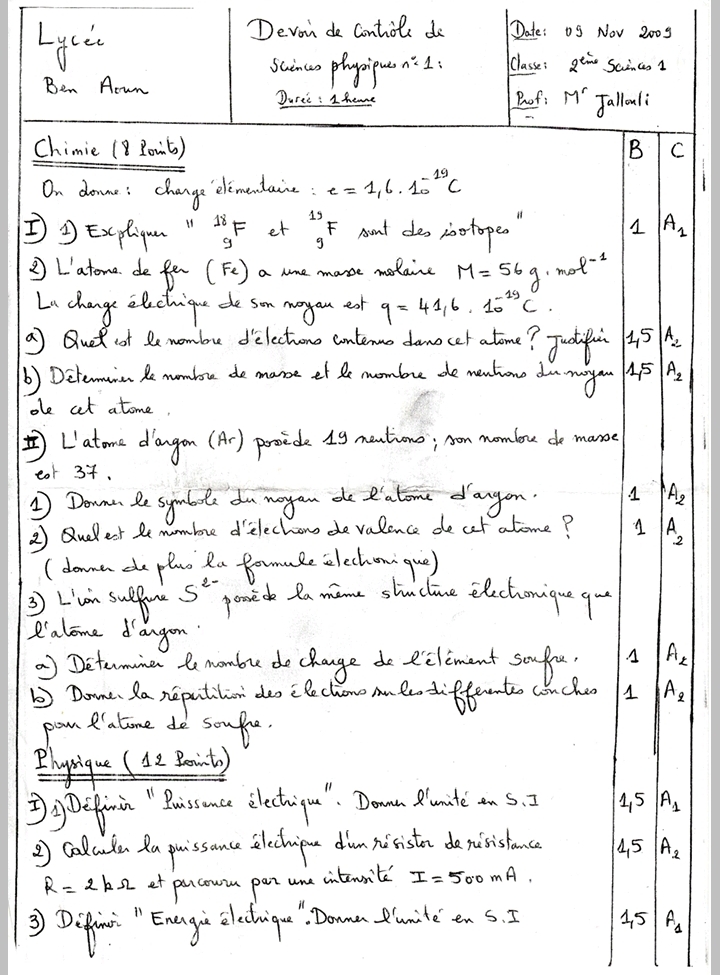 Lycée
Ben Aoun
Devoir de Contrôle de
Sciences physiques n° 1 :
Durée : 1 heure
Date : 09 Nov 2009
Classe : 2ème Sciences 1
Prof : Mr Jallouli
Chimie (8 Points)
B C
On donne : charge élémentaire : e = 1,6 . 10^-19 C
I) 1) Expliquer " ¹⁸₉F et ¹⁹₉F sont des isotopes" 1 A₁
2) L'atome de fer (Fe) a une masse molaire M = 56 g . mol⁻¹
La charge électrique de son noyau est q = 41,6 . 10⁻¹⁹ C .
a) Quel est le nombre d'électrons contenus dans cet atome ? Justifier 1,5 A₂
b) Déterminer le nombre de masse et le nombre de neutrons du noyau 1,5 A₂
de cet atome .
II) L'atome d'argon (Ar) possède 19 neutrons ; son nombre de masse
est 37 .
1) Donner le symbole du noyau de l'atome d'argon . 1 A₂
2) Quel est le nombre d'électrons de valence de cet atome ? 1 A₂
(donner de plus la formule électronique)
3) L'ion sulfure S²⁻ possède la même structure électronique que
l'atome d'argon .
a) Déterminer le nombre de charge de l'élément soufre . 1 A₂
b) Donner la répartition des électrons sur les différentes couches 1 A₂
pour l'atome de soufre .
Physique (12 Points)
I) 1) Définir "Puissance électrique" . Donner l'unité en S.I 1,5 A₁
2) Calculer la puissance électrique d'un résistor de résistance 1,5 A₂
R = 2 kΩ et parcouru par une intensité I = 500 mA .
3) Définir "Energie électrique" . Donner l'unité en S.I 1,5 A₁